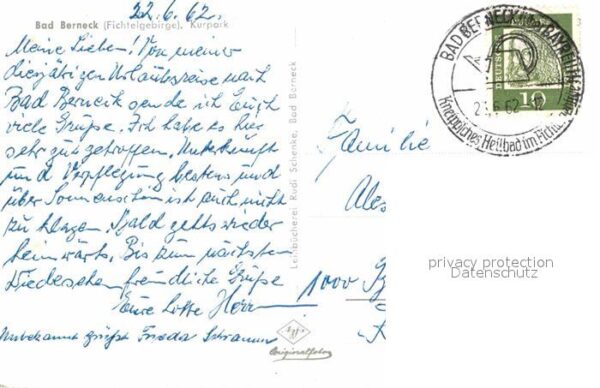 22.6.62.
Bad Berneck (Fichtelgebirge). Kurpark
Meine Lieben! Von meiner
diesjährigen Urlaubsreise nach
Bad Berneck sende ich Euch
viele Grüße. Ich habe es hier
sehr gut getroffen. Unterkunft
und Verpflegung bestens und
über Sonnenschein ist auch nicht
zu klagen. Bald gehts wieder
heimwärts. Bis zum nächsten
Wiedersehen freundliche Grüße
Eure Lotte Herr
Unbekannt grüßt Frieda
Leihbücherei Rudi Schenke, Bad Berneck
Originalfoto
Familie
1000
BAD BERNECK
Kneippsches Heilbad im
DEUTSCHE
10
privacy protection
Datenschutz